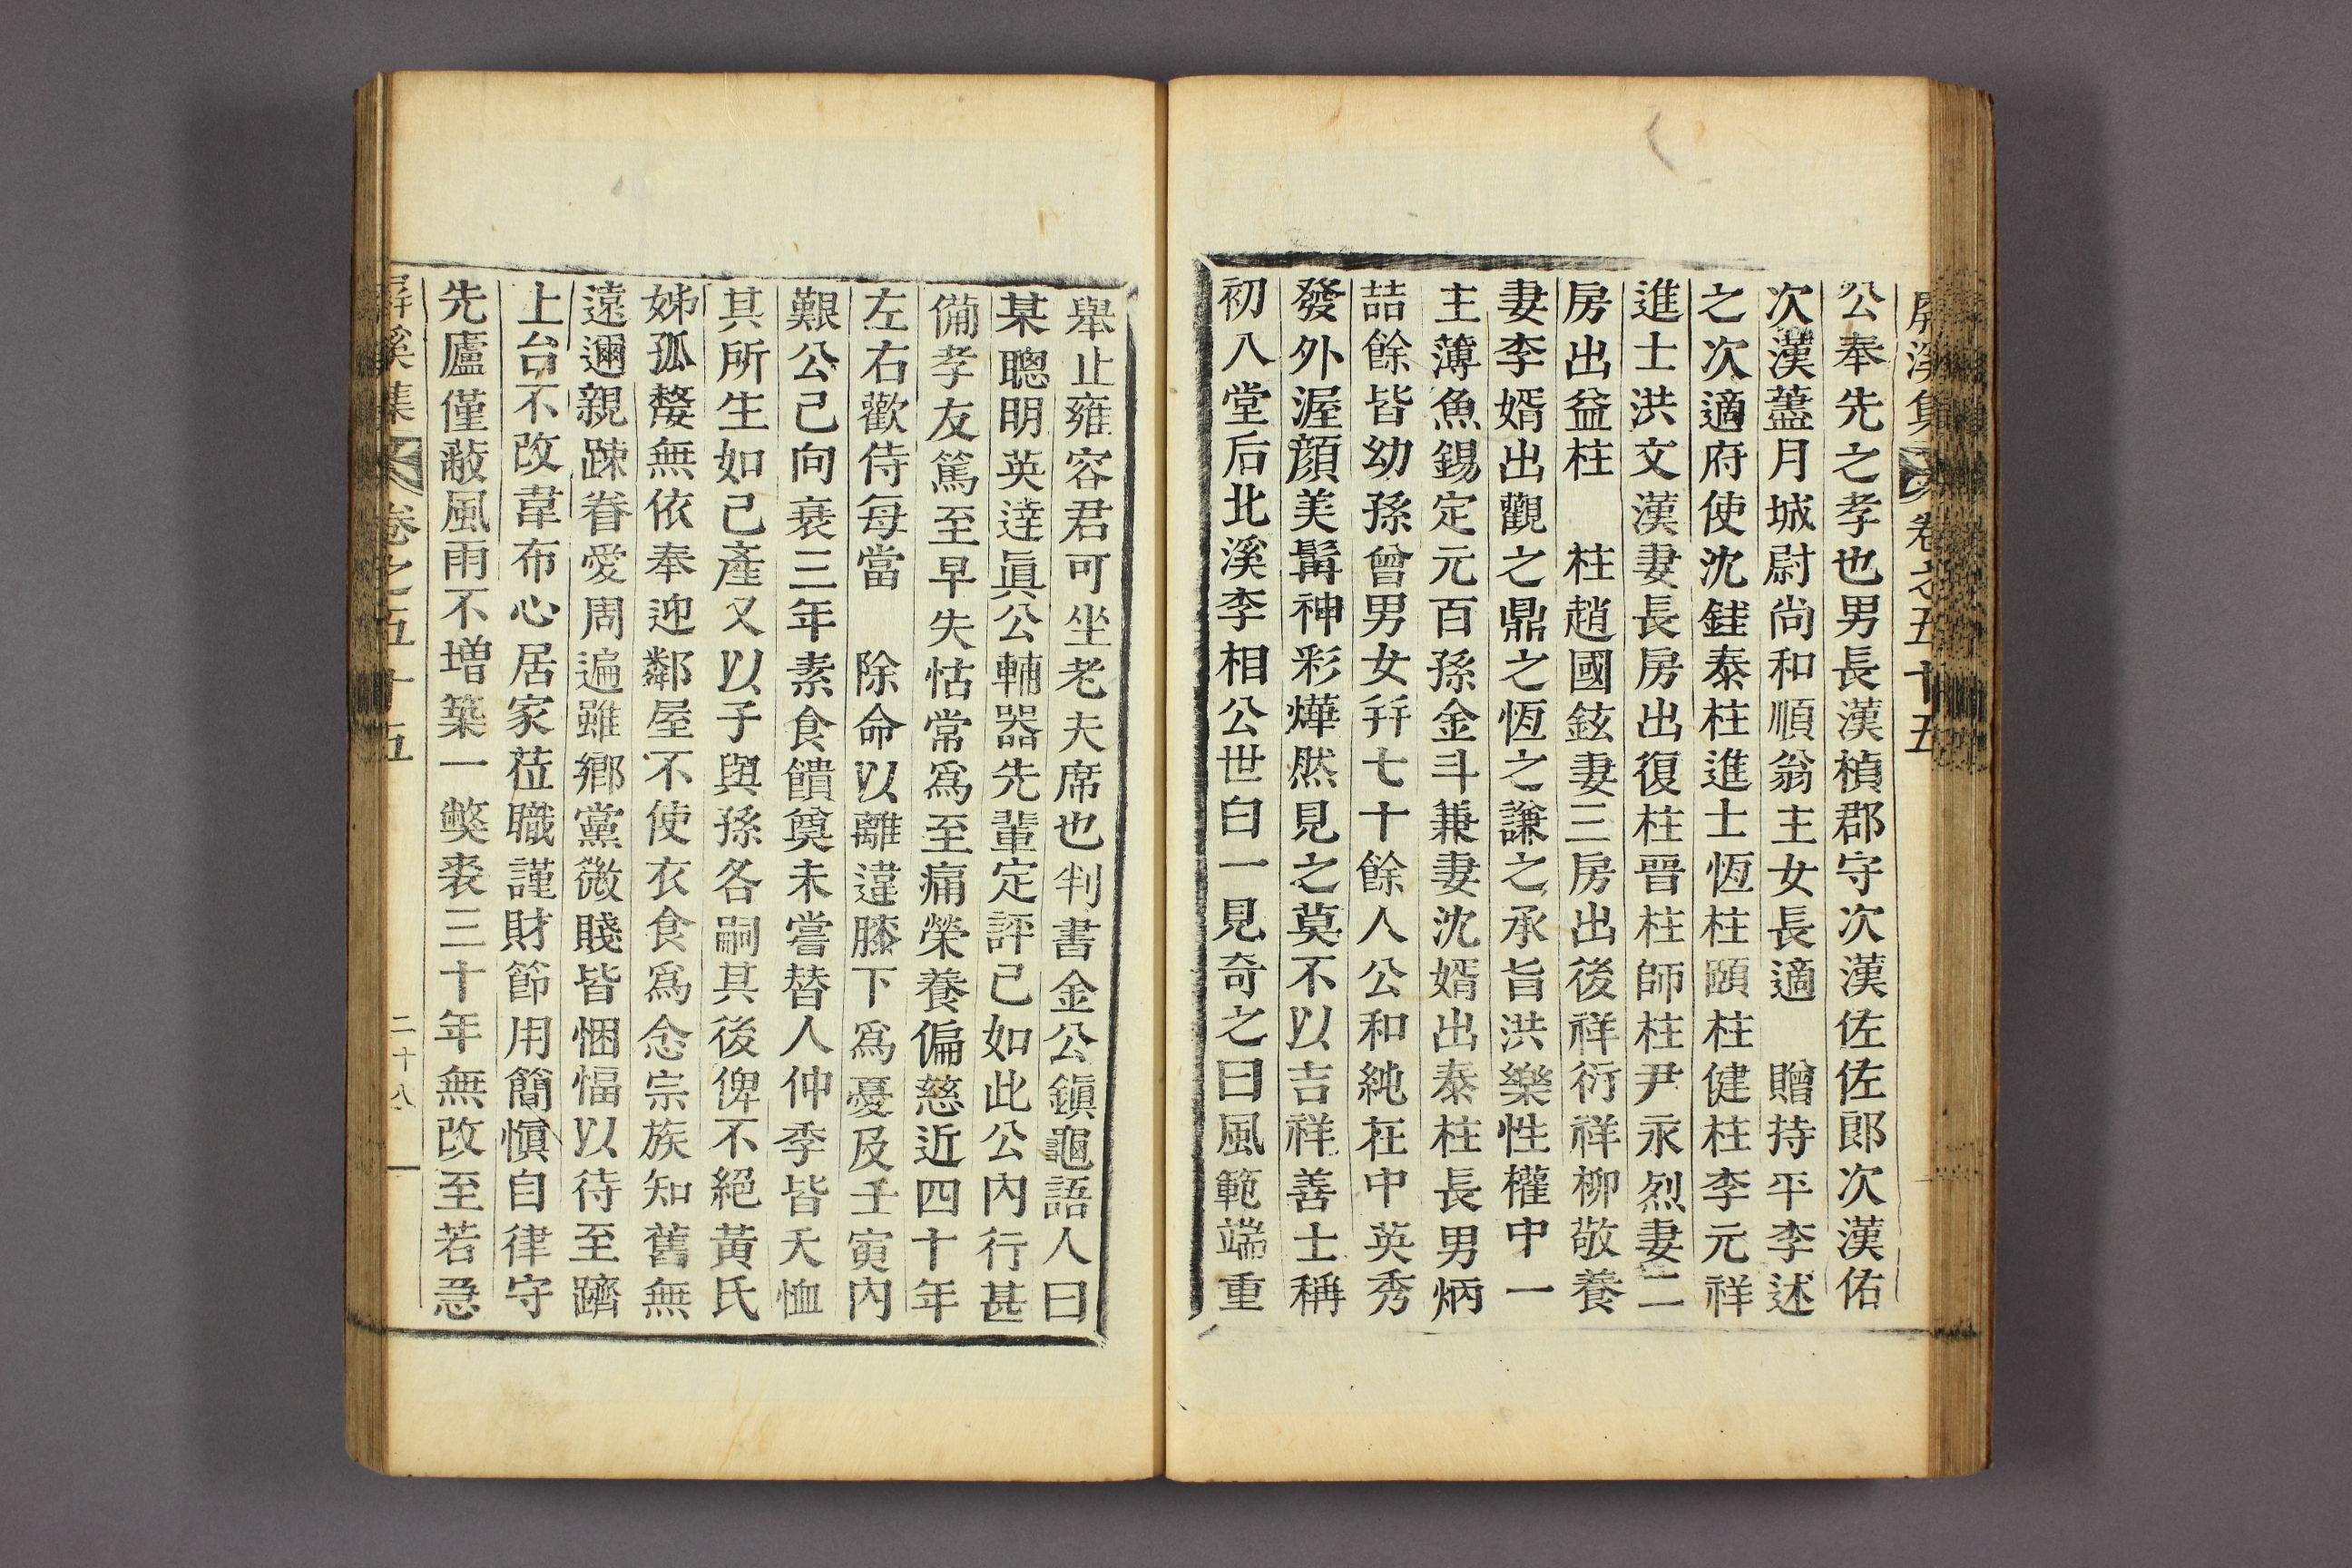 屏溪集 卷之五十五
公奉先之孝也男長漢楨郡守次漢佐佐郎次漢佑
次漢藎月城尉尙和順翁主女長適 贈持平李述
之次適府使沈銈泰柱進士恆柱頤柱健柱李元祥
進士洪文漢妻長房出復柱晉柱師柱尹永烈妻二
房出益柱 柱趙國鉉妻三房出後祥衍祥柳敬養
妻李婿出觀之鼎之恆之謙之承旨洪樂性權中一
主薄魚錫定元百孫金斗兼妻沈婿出泰柱長男炳
喆餘皆幼孫曾男女幷七十餘人公和純在中英秀
發外渥顔美髯神彩燁然見之莫不以吉祥善士稱
初八堂后北溪李相公世白一見奇之曰風範端重
擧止雍容君可坐老夫席也判書金公鎭龜語人曰
某聰明英達眞公輔器先輩定評已如此公內行甚
備孝友篤至早失怙常爲至痛榮養偏慈近四十年
左右歡侍每當 除命以離違膝下爲憂及壬寅內
艱公已向衰三年素食饋奠未嘗替人仲季皆夭恤
其所生如己產又以子與孫各嗣其後俾不絕黃氏
姊孤嫠無依奉迎鄰屋不使衣食爲念宗族知舊無
遠邇親踈眷愛周遍雖鄕黨微賤皆悃愊以待至躋
上台不改韋布心居家莅職謹財節用簡愼自律守
先廬僅蔽風雨不增築一獘裘三十年無改至若急
屛溪集 卷之五十五 二十八